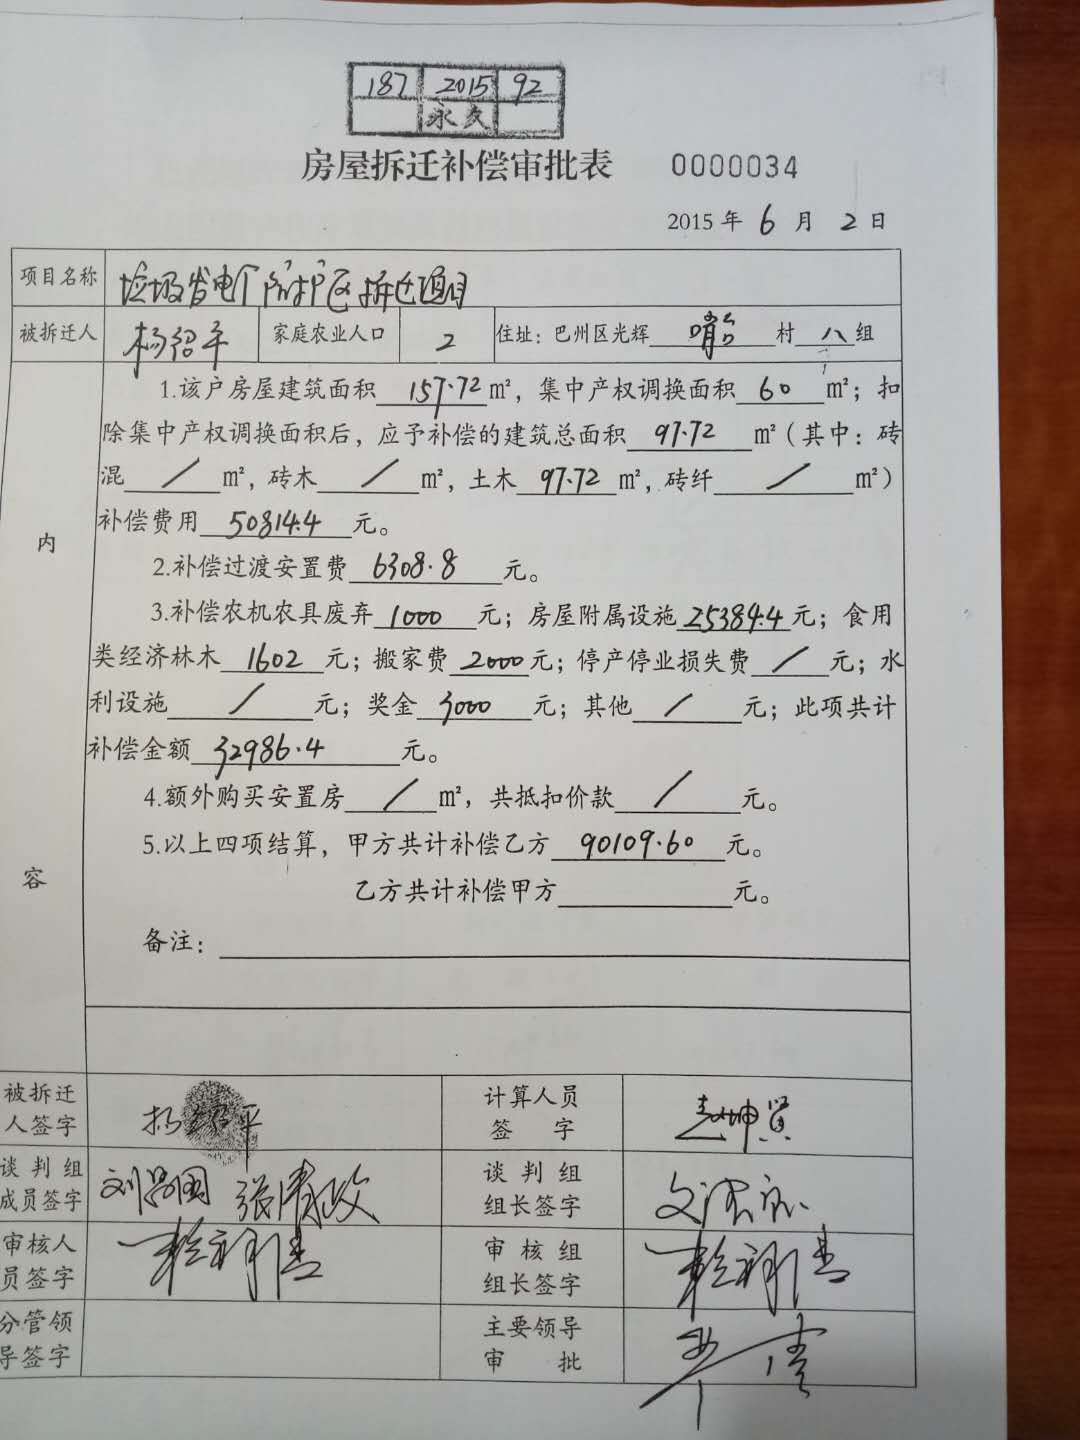 187 2015 92
永久
房屋拆迁补偿审批表 0000034
2015 年 6 月 2 日
项目名称 垃圾发电厂防护区拆迁项目
被拆迁人 杨绍平 家庭农业人口 2 住址：巴州区光辉 哨台 村 八 组
内容
1.该户房屋建筑面积 157.72 m²，集中产权调换面积 60 m²；扣
除集中产权调换面积后，应予补偿的建筑总面积 97.72 m²（其中：砖
混 / m²，砖木 / m²，土木 97.72 m²，砖纤 / m²）
补偿费用 50814.4 元。
2.补偿过渡安置费 6308.8 元。
3.补偿农机农具废弃 1000 元；房屋附属设施 25384.4 元；食用
类经济林木 1602 元；搬家费 2000 元；停产停业损失费 / 元；水
利设施 / 元；奖金 3000 元；其他 / 元；此项共计
补偿金额 32986.4 元。
4.额外购买安置房 / m²，共抵扣价款 / 元。
5.以上四项结算，甲方共计补偿乙方 90109.60 元。
乙方共计补偿甲方 元。
备注：
被拆迁人签字 杨绍平 计算人员签字 赵坤贤
谈判组成员签字 张清政 谈判组组长签字
审核人员签字 审核组组长签字
分管领导签字 主要领导审批